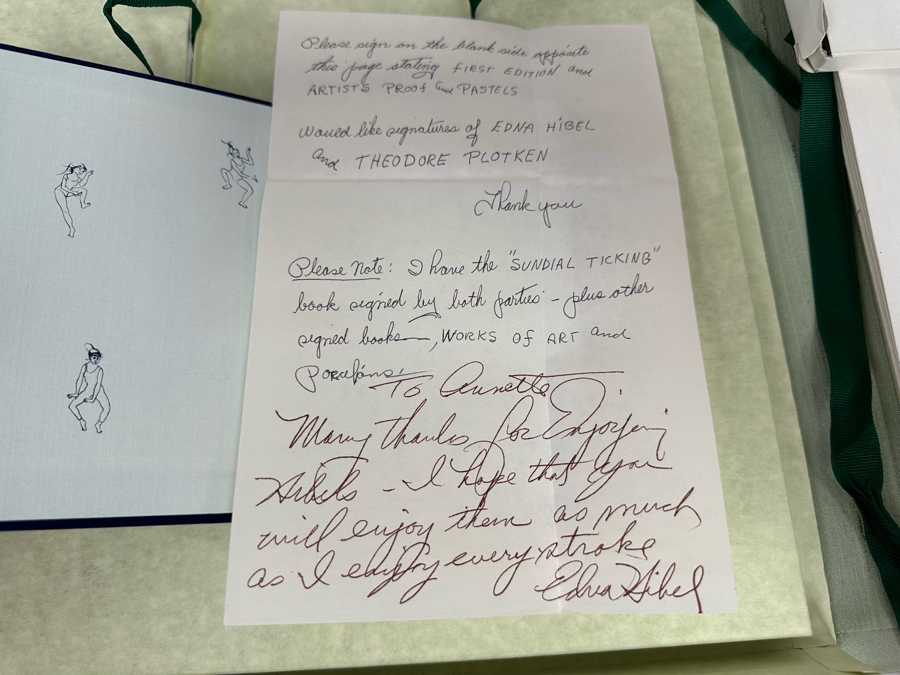 Please sign on the blank side opposite
this page stating FIRST EDITION and
ARTIST'S PROOF and PASTELS
Would like signatures of EDNA HIBEL
and THEODORE PLOTKEN
Thank you
Please Note: I have the "SUNDIAL TICKING"
book signed by both parties - plus other
signed books, WORKS OF ART and
Porcelains.
To Annette
Many thanks for Enjoying
Hibels - I hope that you
will enjoy them as much
as I enjoy every stroke
Edna Hibel